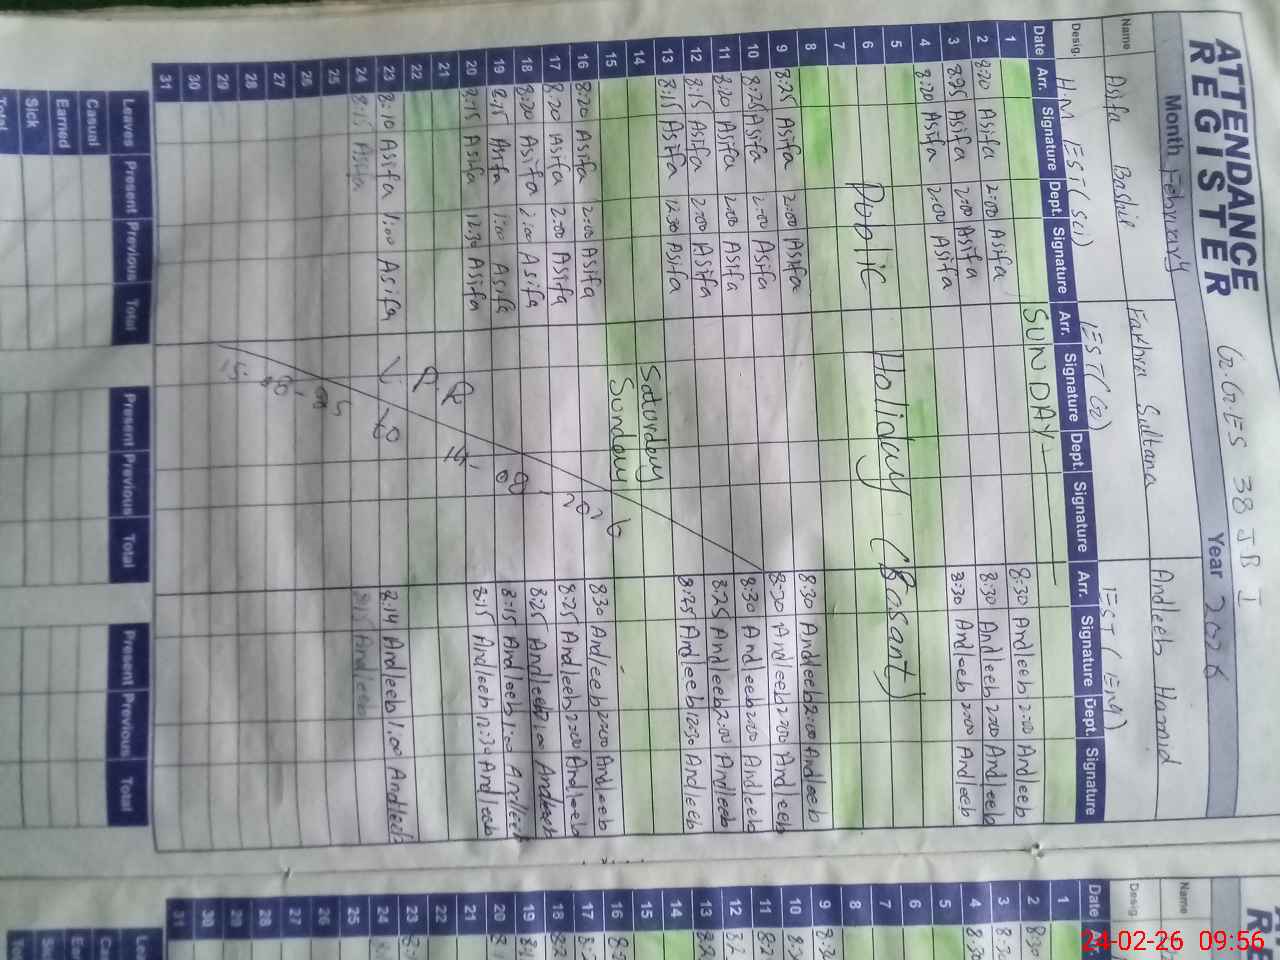 ATTENDANCE REGISTER
G.G.ES 38 JB I
Month February Year 2026
Name Asifa Bashir Fakhra Sultana Andleeb Hamid
Desig. H.M EST( SCI) EST( G2) EST ( Eng)
Date Arr. Signature Dept. Signature Arr. Signature Dept. Signature Arr. Signature Dept. Signature
1 SUNDAY
2 8:20 Asifa 2:00 Asifa 8:30 Andleeb 2:00 Andleeb
3 8:25 Asifa 2:00 Asifa 8:30 Andleeb 2:00 Andleeb
4 8:20 Asifa 2:00 Asifa 8:30 Andleeb 2:00 Andleeb
5
6 Public Holiday (Basant)
7
8
9 8:25 Asifa 2:00 Asifa 8:30 Andleeb 2:00 Andleeb
10 8:25 Asifa 2:00 Asifa 8:30 Andleeb 2:00 Andleeb
11 8:20 Asifa 2:00 Asifa 8:30 Andleeb 2:00 Andleeb
12 8:15 Asifa 2:00 Asifa 8:25 Andleeb 2:00 Andleeb
13 8:15 Asifa 12:30 Asifa 8:25 Andleeb 12:30 Andleeb
14 Saturday
15 Sunday
16 8:20 Asifa 2:00 Asifa 8:30 Andleeb 2:00 Andleeb
17 8:20 Asifa 2:00 Asifa 8:25 Andleeb 2:00 Andleeb
18 8:20 Asifa 2:00 Asifa 8:25 Andleeb Andleeb
19 8:15 Asifa 1:00 Asifa 8:15 Andleeb 1:00 Andleeb
20 8:15 Asifa 12:30 Asifa 8:15 Andleeb 12:30 Andleeb
21
22
23 8:10 Asifa 1:00 Asifa 8:14 Andleeb 1:00 Andleeb
24 8:15 Asifa 8:15 Andleeb
25
26
27
28
29
30
31
Leaves Present Previous Total Present Previous Total Present Previous Total
Casual
Earned
Sick
Total
Name
Desig.
Date Arr.
1
2 8:30
3
4 8:30
5
6
7
8
9
10
11
12
13
14
15
16
17
18
19
20
21
22
23
24
25
26
27
28
29
30
31
24-02-26 09:56